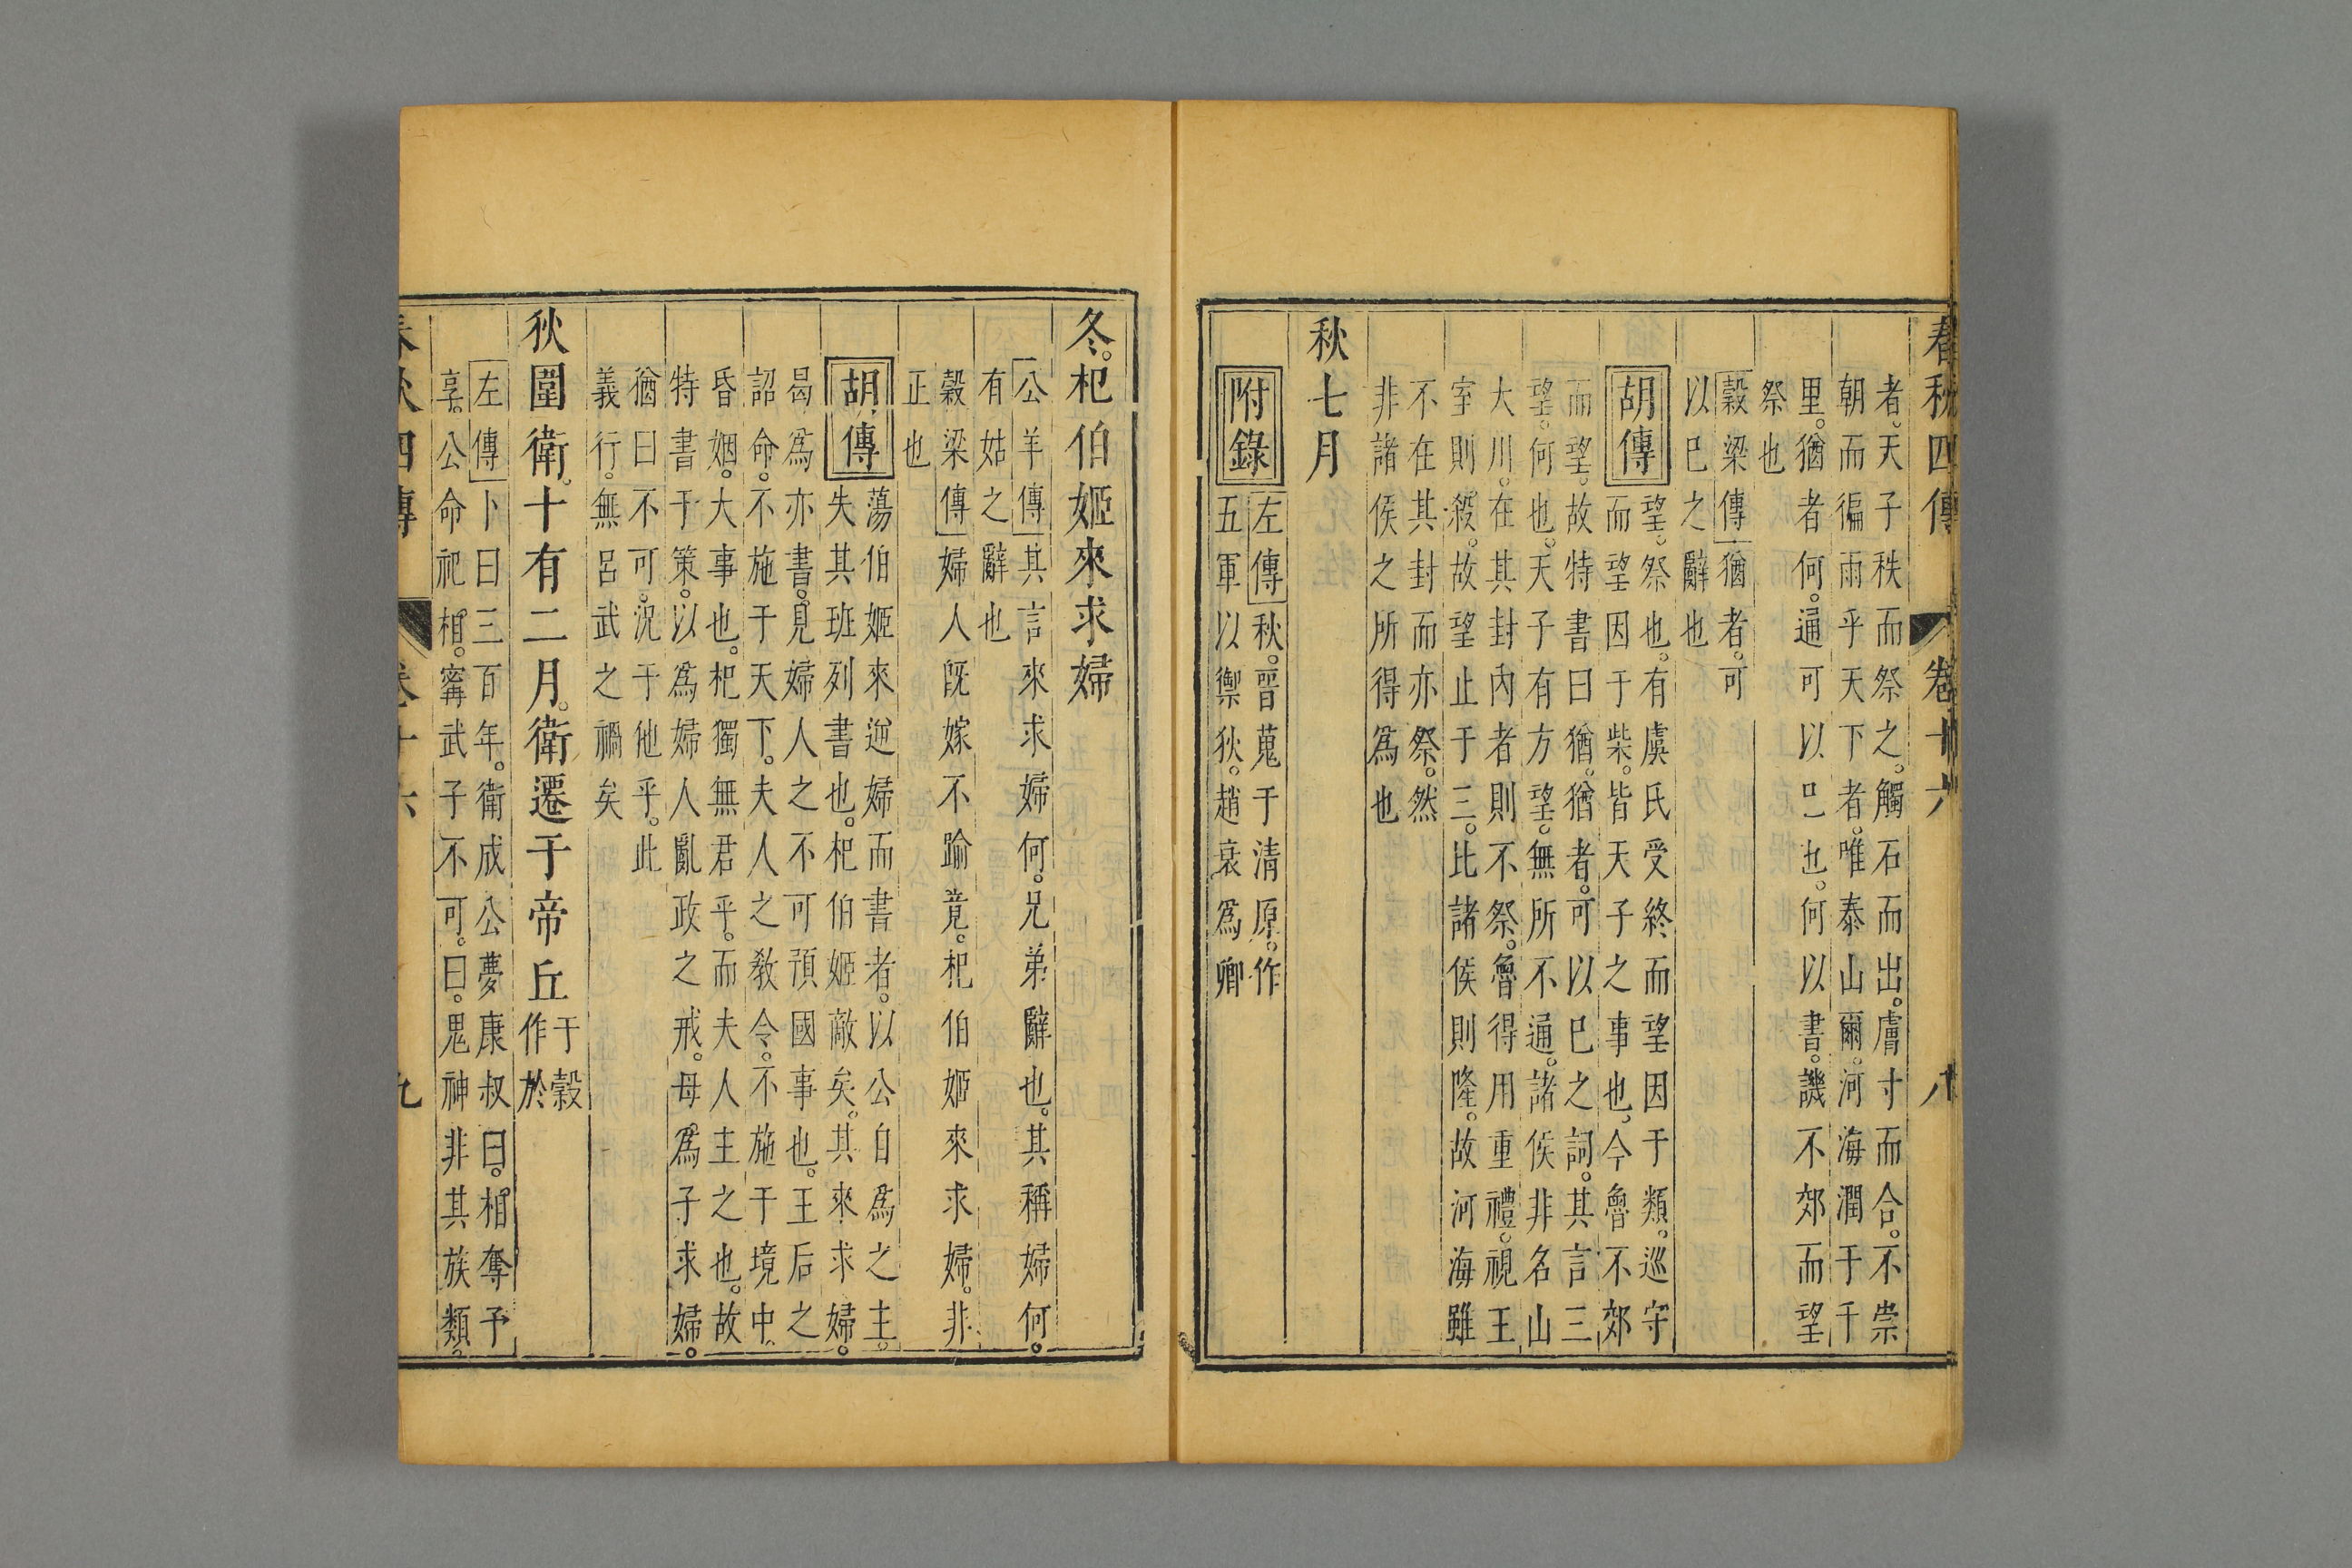 春秋四傳 卷十六 八
者。天子秩而祭之。觸石而出。膚寸而合。不崇
朝而徧雨乎天下者。唯泰山爾。河海潤于千
里。猶者何。通可以已也。何以書。譏不郊而望
祭也
穀梁傳猶者。可
以已之辭也
胡傳
望。祭也。有虞氏受終而望因于類。巡守
而望因于柴。皆天子之事也。今魯不郊
而望。故特書曰猶。猶者。可以已之詞。其言三
望。何也。天子有方望。無所不通。諸侯非名山
大川。在其封內者則不祭。魯得用重禮。視王
室則殺。故望止于三。比諸侯則隆。故河海雖
不在其封而亦祭。然
非諸侯之所得爲也
秋七月
附錄
左傳秋。晉蒐于清原。作
五軍以禦狄。趙衰爲卿
冬。杞伯姬來求婦
公羊傳其言來求婦何。兄弟辭也。其稱婦何。
有姑之辭也
穀梁傳婦人既嫁不踰竟。杞伯姬來求婦。非
正也
胡傳
蕩伯姬來逆婦而書者。以公自爲之主。
失其班列書也。杞伯姬敵矣。其來求婦。
曷爲亦書。見婦人之不可預國事也。王后之
詔命。不施于天下。夫人之敎令。不施于境中。
昏姻。大事也。杞獨無君乎。而夫人主之也。故
特書于策。以爲婦人亂政之戒。母爲子求婦。
猶曰不可。況于他乎。此
義行。無呂武之禍矣
狄圍衛。十有二月。衛遷于帝丘
于穀
作於
左傳卜曰三百年。衛成公夢康叔曰。相奪予
享。公命祀相。甯武子不可。曰。鬼神非其族類。
春秋四傳 卷十六 九